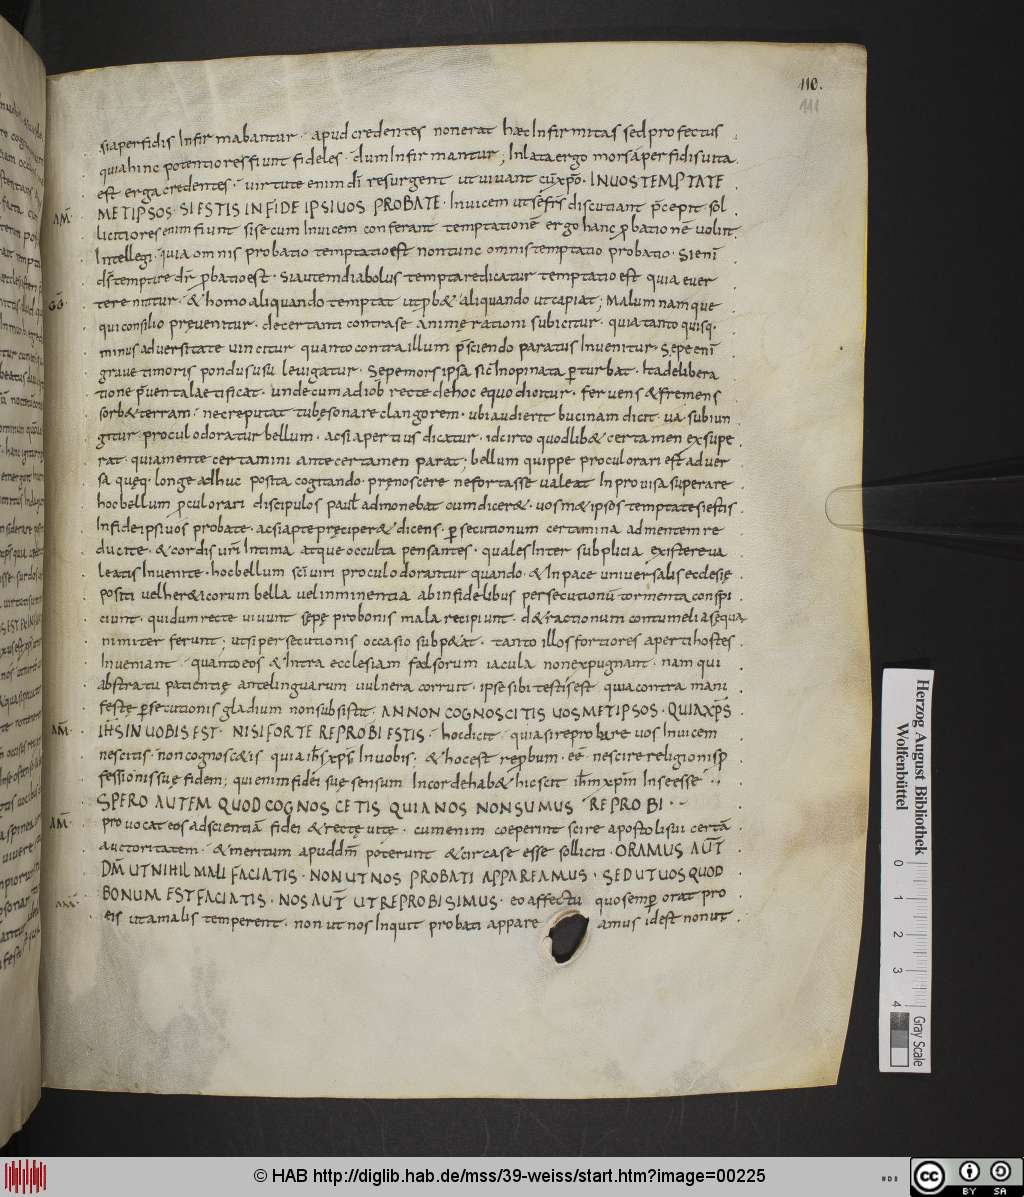 110.
111
siaperfidis Infirmabantur · apud credentes non erat hæc Infirmitas sed profectus
quia hinc potentiores fiunt fideles · dum Infirmantur; Inlata ergo mors á perfidis uita
est erga credentes · uirtute enim dī resurgent ut uiuant cū xp̄o · INUOSTEMPTATE
METIPSOS · SI ESTIS IN FIDE IPSI UOS PROBATE · Inuicem ut se discutiant p̄cepit sol
AM̄
licitiores enim fiunt si secum Inuicem conferant temptationē ergo hanc ꝓbationē uolunt
Intellegi · quia omnis probatio temptatio est non tunc omnis temptatio probatio · Si enī
temptare dr̄ ꝓbatio est · Si autem diabolus temptare dicatur temptatio est quia euer
tere nititur · & homo aliquando temptat ut ꝓb& aliquando ut capiat; Malum namque
GG̅
qui consilio preuenitur · decertanti contra se animę rationi subicitur · quia tanto quisq·
minus aduersitate uincitur quanto contra illum p̄sciendo paratus Inuenitur · Sępe enī
graue timoris pondus usu leuigatur · Sępe mors ipsa sic̄ Inopinata ꝑturbat · Ita delibera
tione p̄uenta laetificat · unde cum ad iob recte de hoc equo dicitur · feruens & fremens
sorb& terram · nec reputat tubę sonare clangorem · ubi audierit bucinam dicit · ua subiun
gitur procul odoratur bellum · ac si apertius dicatur · idcirco quodlib& certamen exsupe
rat · quia mente certamini ante certamen parat; bellum quippe procul orari est aduer
sa quęq· longe adhuc posita cogitando · pręnoscere ne fortasse ualeat Inprouisa superare
hoc bellum ꝓcul orari discipulos paul̄ admonebat cum dicer& · uosm& ipsos temptate si estis
Infide ipsi uos probate · ac si apte pręciper& dicens · ꝑsecutionum certamina ad mentem re
ducite · & cordis urī Intima atque occulta pensantes · quales Inter supplicia existere ua
leatis Inuenite · hoc bellum sc̄i uiri procul odorantur quando · & Inpace uniuersalis ecclesię
positi uel her&icorum bella uel inminentia ab infidelibus persecutionū tormenta conspi
ciunt · qui dum recte uiuunt sępę pro bonis mala recipiunt · d&ractionum contumelias equa
nimiter ferunt; ut si persecutionis occasio subp&at · tanto illos fortiores aperti hostes
Inueniant quanto eos & Intra ecclesiam falsorum iacula non expugnant · nam qui
abstratu patientię ante linguarum uulnera corruit · ipse sibi testis est quia contra mani
festę ꝑsecutionis gladium non subsistit · ANNON COGNOSCITIS UOSMETIPSOS · QUIA XP̄S
IH̄S IN UOBIS EST · NISI FORTE REPROBI ESTIS · hoc dicit quia si reprobare uos Inuicem
AM̄
nescitis · non cognosc&is quia ih̄s xp̄s Inuobis · & hoc est reprobum · eē nescire religionis ꝓ
fessionis suę fidem; qui enim fidei suę sensum Incorde hab& hic scit ih̄m xp̄m In se esse ··
SPERO AUTEM QUOD COGNOSCETIS QUIA NOS NON SUMUS REPROBI ··
prouocat eos ad scientiā fidei & rectę uitę · cum enim coeperint scire apostolis ui certā
AM̄
auctoritatem · & meritum apud dm̄ poterunt & circa se esse solliciti · ORAMUS AUT̄
DM̄ UT NIHIL MALI FACIATIS · NON UT NOS PROBATI APPAREAMUS · SED UT UOS QUOD
BONUM EST FACIATIS · NOS AUT̄ UT REPROBI SIMUS · eo affectu quo semꝑ orat pro
AM̄
eis ut a malis temperent · non ut nos Inquit probati appare amus id est non ut
Herzog August Bibliothek
Wolfenbüttel
0 1 2 3 4
Gray Scale
© HAB http://diglib.hab.de/mss/39-weiss/start.htm?image=00225
cc BY SA